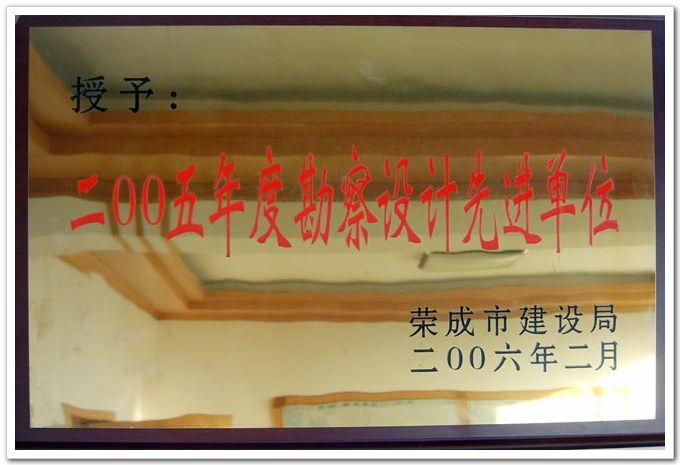 授予：
二00五年度勘察设计先进单位
荣成市建设局
二00六年二月